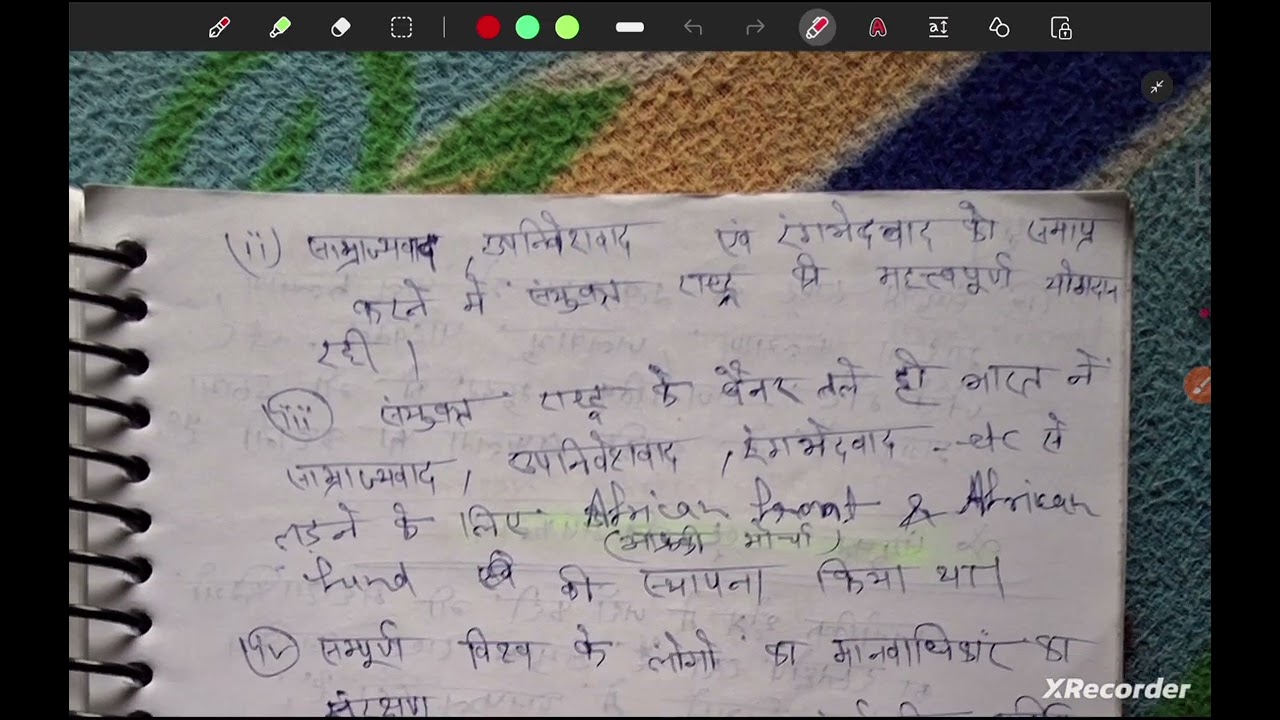 (ii) साम्राज्यवाद, उपनिवेशवाद एवं रंगभेदवाद को समाप्त
करने में संयुक्त राष्ट्र की महत्त्वपूर्ण योगदान
रही ।
(iii) संयुक्त राष्ट्र के बैनर तले ही भारत ने
साम्राज्यवाद, उपनिवेशवाद, रंगभेदवाद - etc से
लड़ने के लिए African front & African
(अफ्रीकी मोर्चा)
fund की स्थापना किया था।
(iv) सम्पूर्ण विश्व के लोगों का मानवाधिकार का
संरक्षण
XRecorder